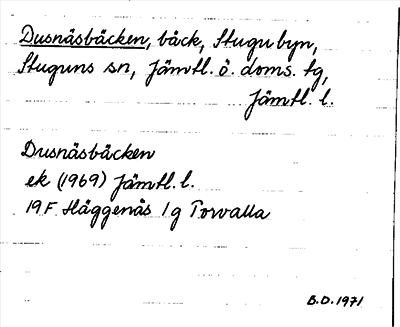 Dusnäsbäcken, bäck, Stugubyn,
Stuguns sn, Jämtl. ö. doms. tg,
Jämtl. l.
Dusnäsbäcken
ek (1969) Jämtl. l.
19F Häggenås 1g Torvalla
B.O. 1971